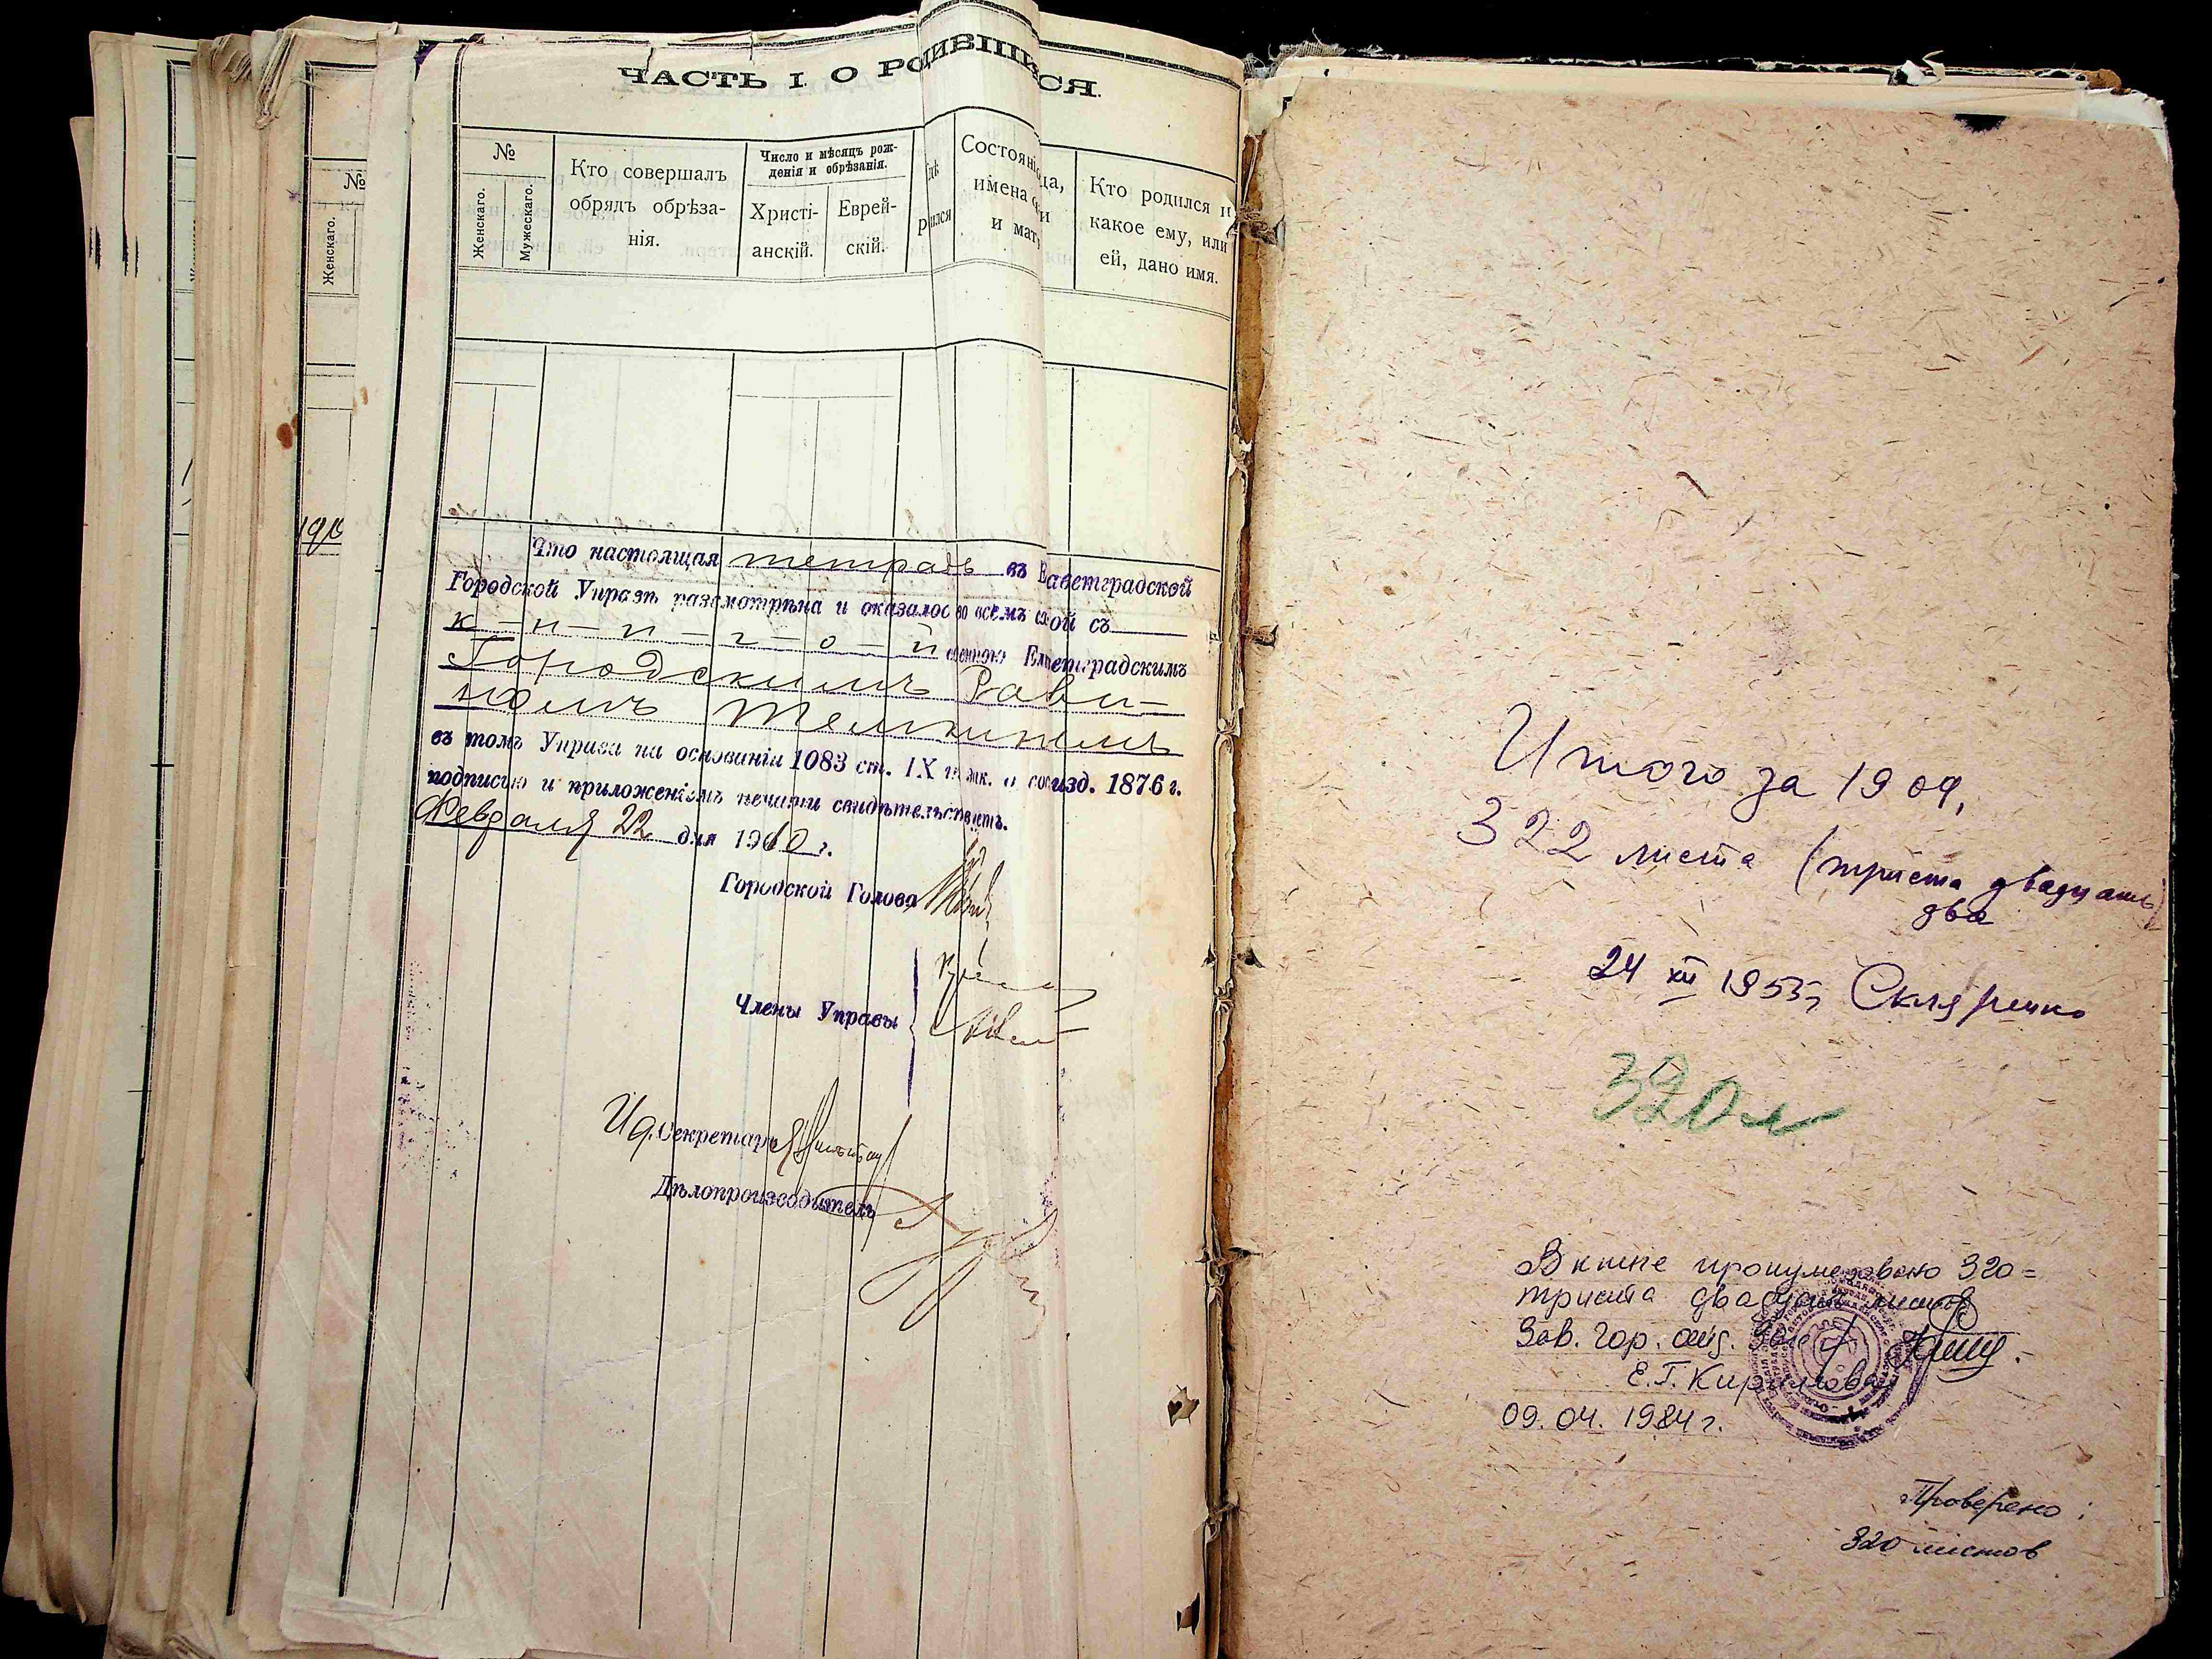 ЧАСТЬ I. О РОДИВШИХСЯ.
№
Женскаго.
Мужескаго.
Кто совершалъ
обрядъ обрѣза-
нія.
Число и мѣсяцъ рож-
денія и обрѣзанія.
Христі-
анскій.
Еврей-
скій.
Состояні
имена
и мат
Кто родился и
какое ему, или
ей, дано имя.
№
Женскаго.
Что настоящая тетрадь въ
Городской Управѣ разсмотрѣна и оказалос во всемъ с
к-н-и-г-о-й
Городскимъ Рави-
номъ Темкинымъ
въ томъ Управа на основаніи 1083 ст. IX изд. 1876 г.
подписью и приложеніемъ печати свидѣтельствуетъ.
Февраля 22 дня 1910 г.
Городской Голова
Члены Управы
И.д. Секретарь
Дѣлопроизводитель
Итого за 1909,
322 листа (триста двадцать
два)
24 XII 1953 г. Скляренко
320 л
В книге пронумеровано 320=
триста двадцать листов
Зав. гор. отд.
Е.Г. Кириллова
09.04.1984 г.
Проверено:
320 листов